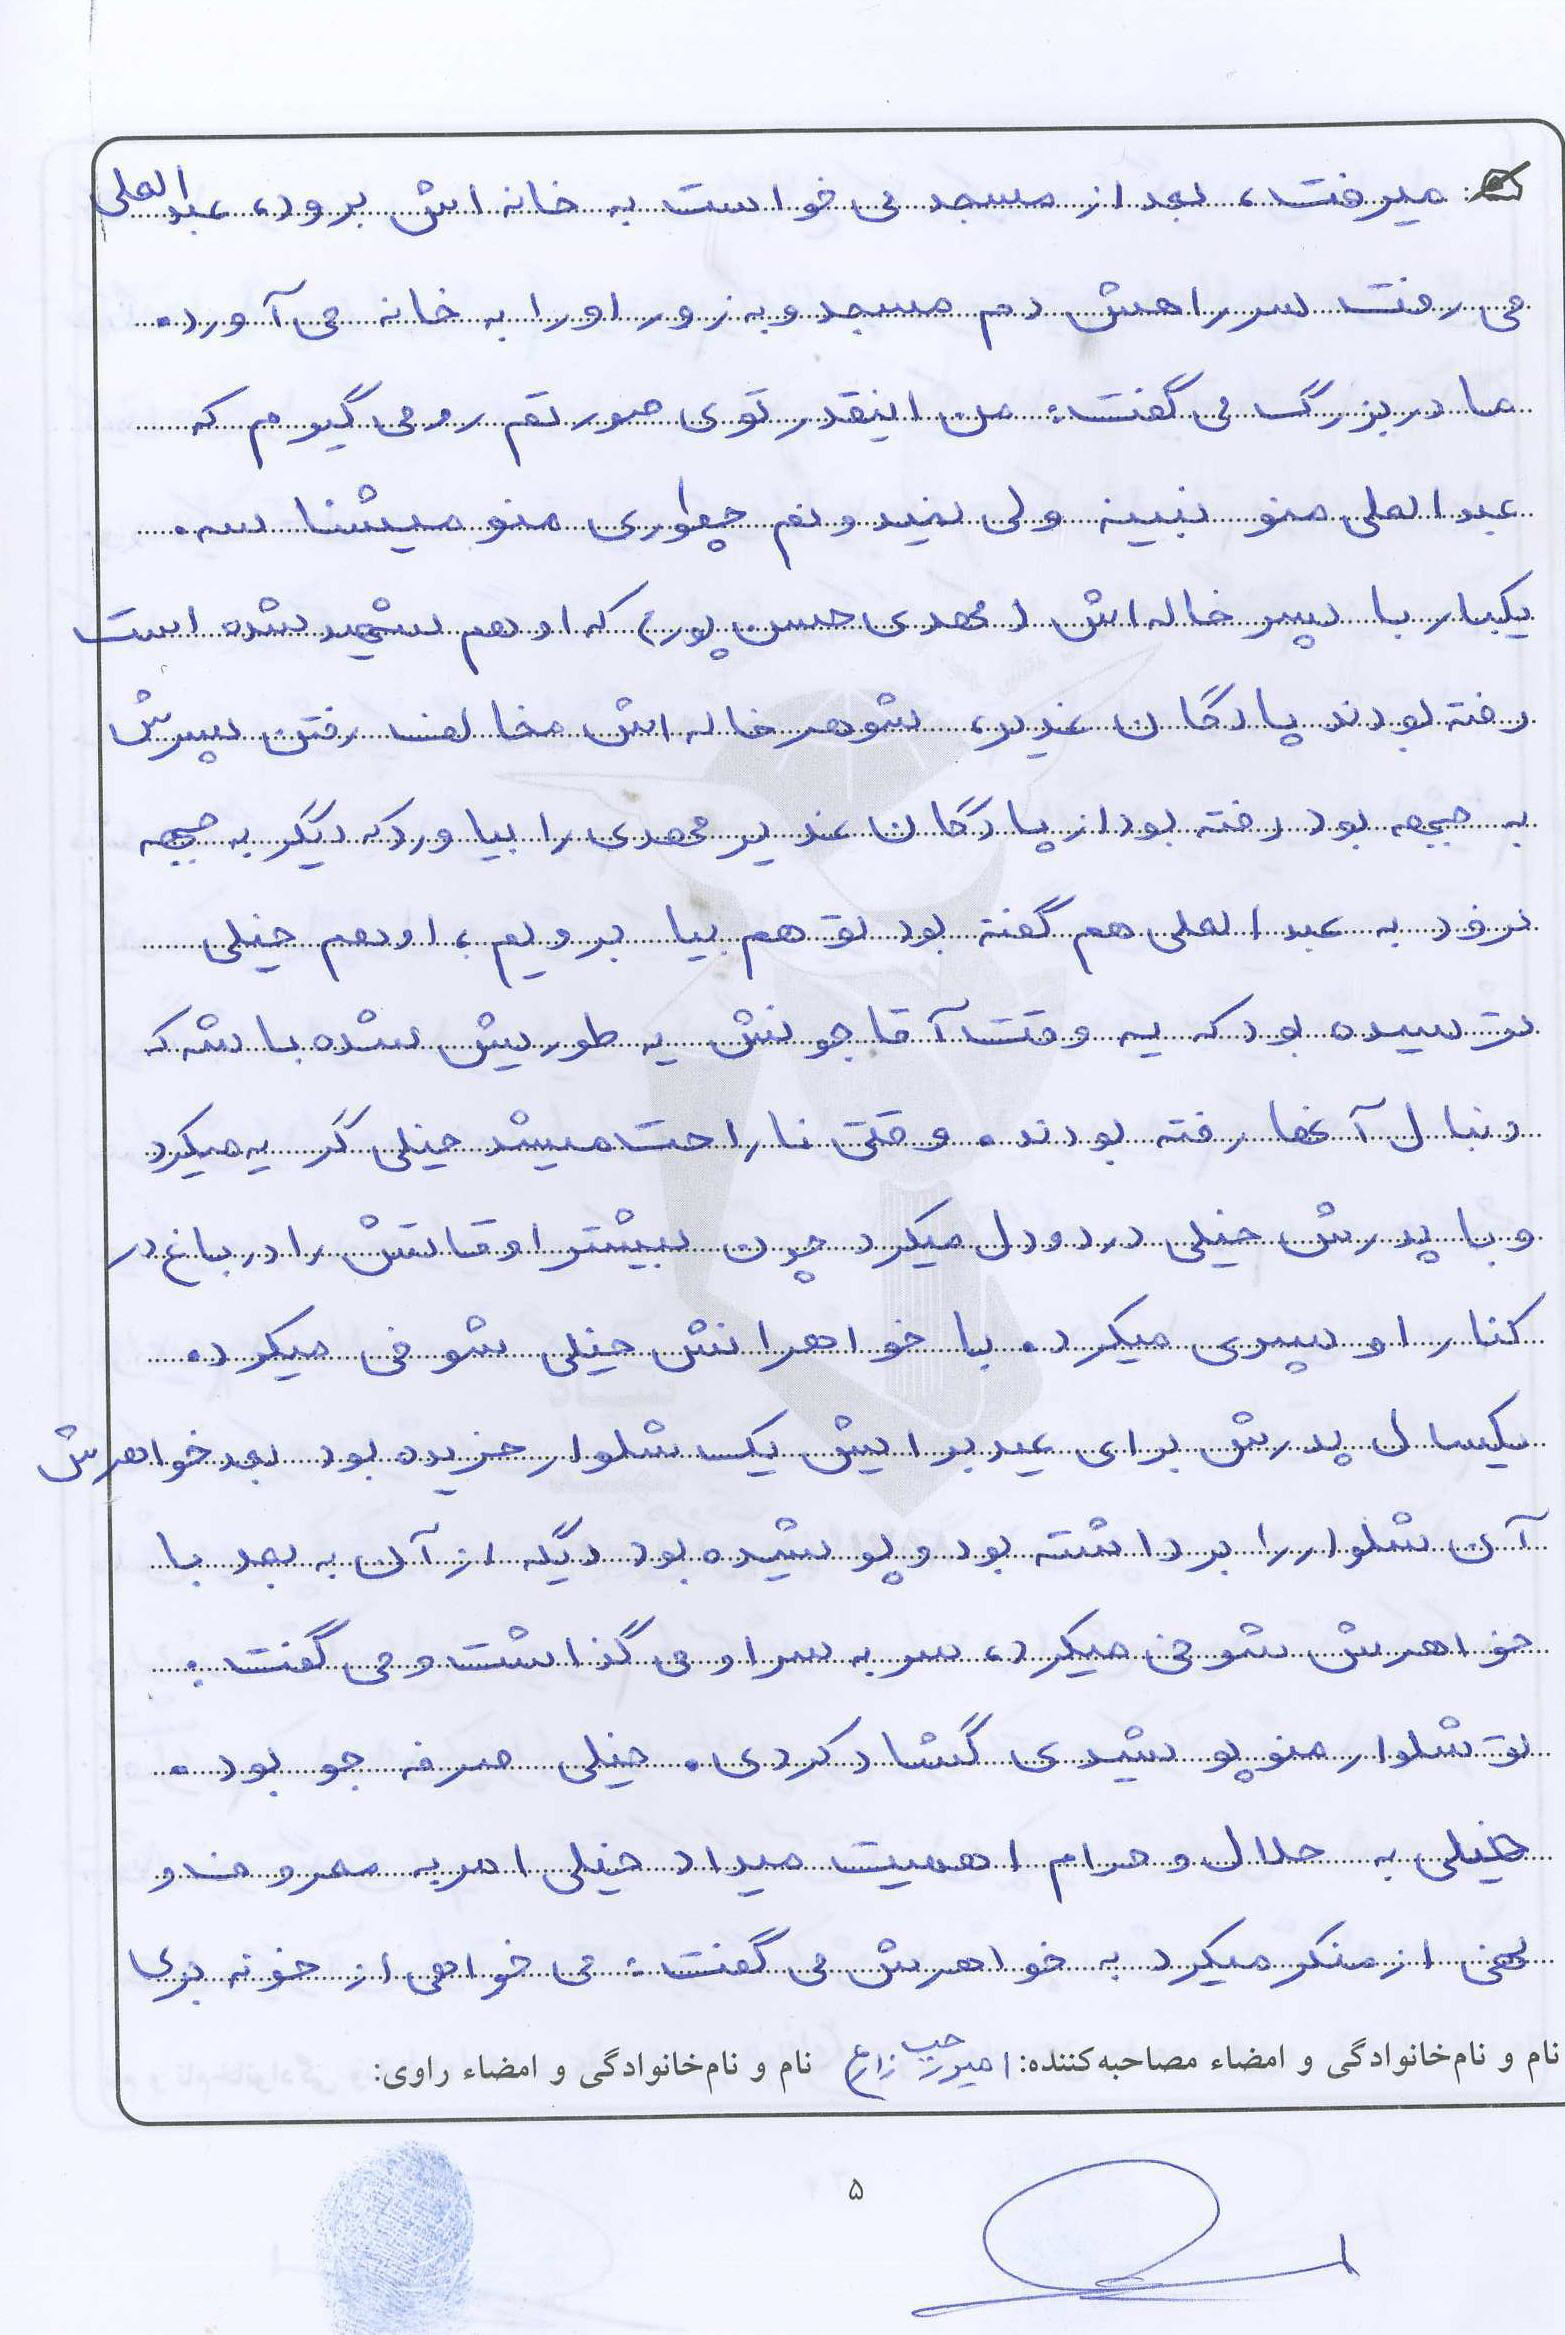 میرفت، بعد از مسجد می خواست به خانه اش برود، عبدالعلی
می رفت سر راهش دم مسجد و به زور او را به خانه می آورد.
مادربزرگ می گفت: من اینقدر توی صورتم رو می گیرم که
عبدالعلی منو نبینه ولی نمیدونم چطوری منو میشناسه.
یکبار با پسر خاله اش (مهدی حسن پور) که او هم شهید شده است
رفته بودند پادگان غدیر، شوهر خاله اش مخالف رفتن پسرش
به جبهه بود رفته بود از پادگان غدیر مهدی را بیاورد که دیگر به جبهه
نرود به عبدالعلی هم گفته بود تو هم بیا برویم، او هم خیلی
ترسیده بود که یه وقت آقاجونش یه طوریش شده باشه که
دنبال آنها رفته بودند. وقتی ناراحت میشد خیلی گریه میکرد
و با پدرش خیلی درد و دل میکرد چون بیشتر اوقاتش را در باغ در
کنار او سپری میکرد. با خواهرانش خیلی شوخی میکرد.
یکسال پدرش برای عید برایش یک شلوار خریده بود بعد خواهرش
آن شلوار را برداشته بود و پوشیده بود دیگه از آن به بعد با
خواهرش شوخی میکرد، سر به سر او می گذاشت و می گفت:
تو شلوار منو پوشیدی گشاد کردی. خیلی صرفه جو بود.
خیلی به حلال و حرام اهمیت میداد خیلی امر به معروف و
نهی از منکر میکرد به خواهرش می گفت: می خواهی از خونه بری
نام و نام‌خانوادگی و امضاء مصاحبه‌کننده: امیررجب زارع نام و نام‌خانوادگی و امضاء راوی:
۵